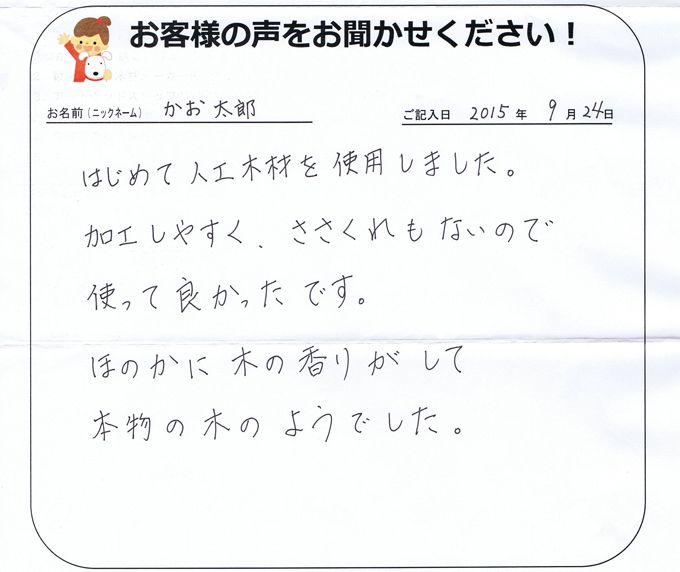 お客様の声をお聞かせください！
お名前（ニックネーム） かお太郎 ご記入日 2015年 9月24日
はじめて人工木材を使用しました。
加工しやすく、ささくれもないので
使って良かったです。
ほのかに木の香りがして
本物の木のようでした。